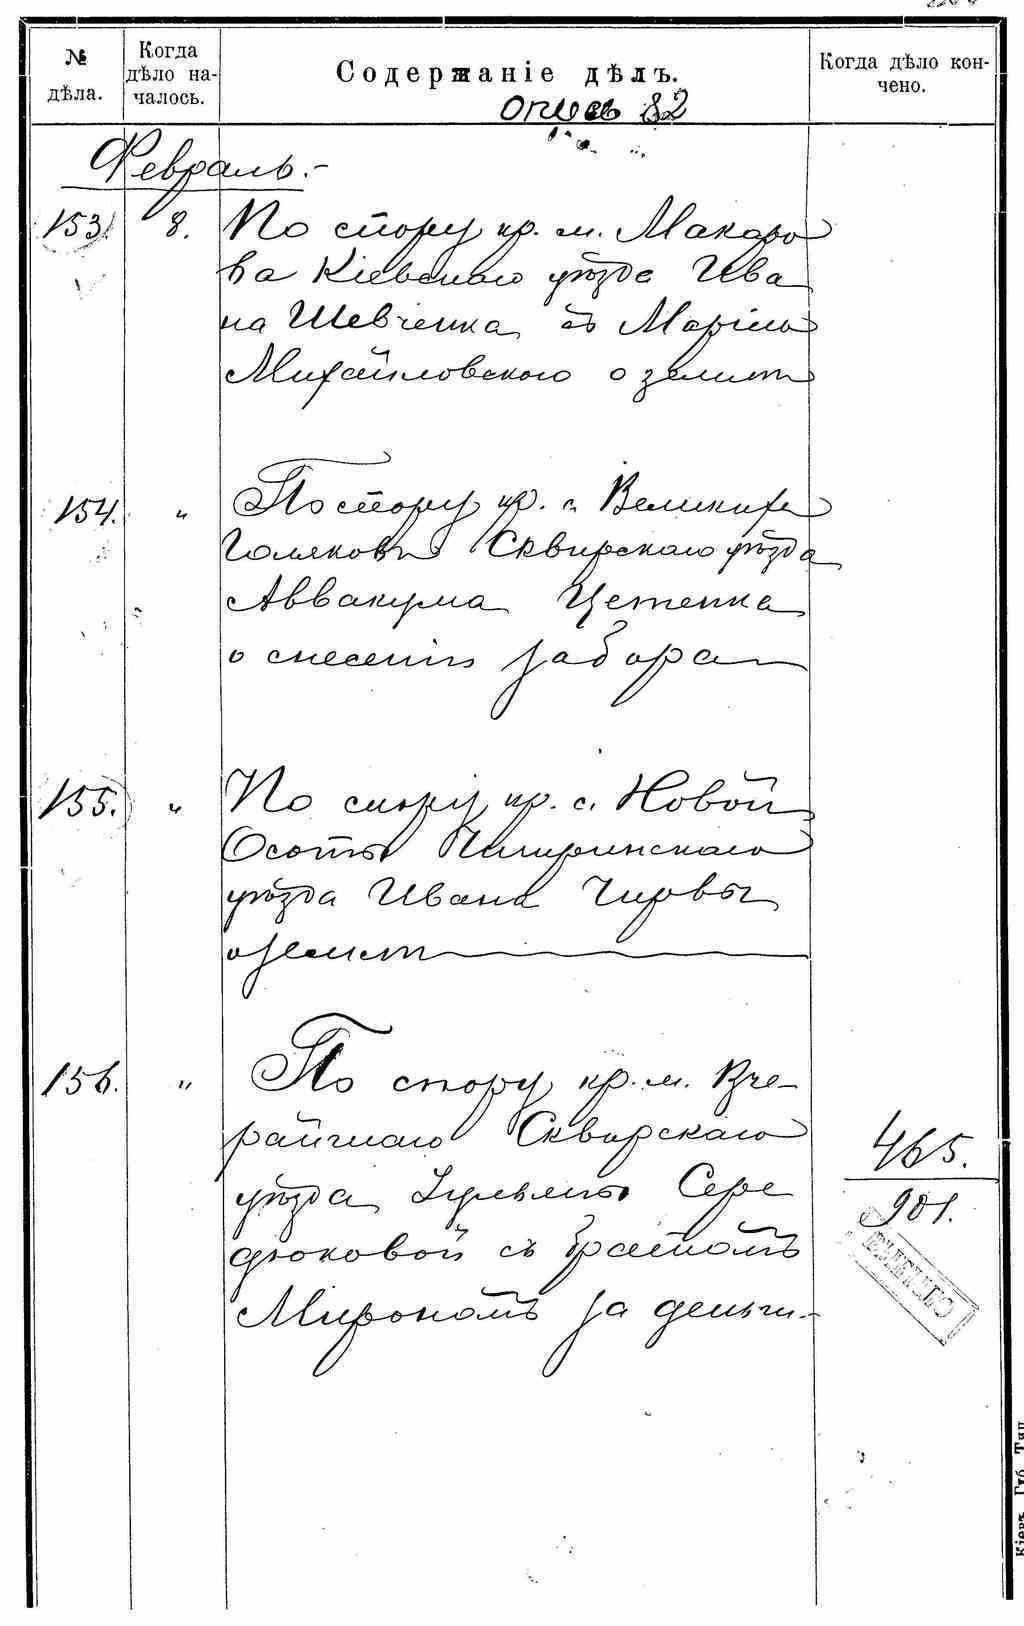 № дѣла.
Когда дѣло началось.
Содержаніе дѣлъ.
Когда дѣло кончено.
опись 82
Февраль.-
153. 8. По спору кр. м. Макаро
ва Кіевскаго уѣзда Ива
на Шевченка съ Маріею
Михайловскою о землѣ
154. " По спору кр. с. Великихъ
Голяковъ Сквирскаго уѣзда
Аввакума
о снесеніи забора
155. " По спору кр. с. Новой
Осоты Чигиринскаго
уѣзда Ивана Чирвы
о землѣ
156. " По спору кр. м. Вче-
райшаго Сквирскаго
уѣзда Сере
дюковой съ братомъ
Мирономъ за деньги.-
465.
901.
Кіевъ. Губ. Тип.